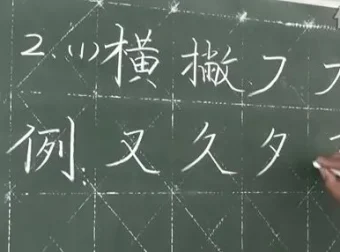 2.(1)横撇㇇
例.又久夕